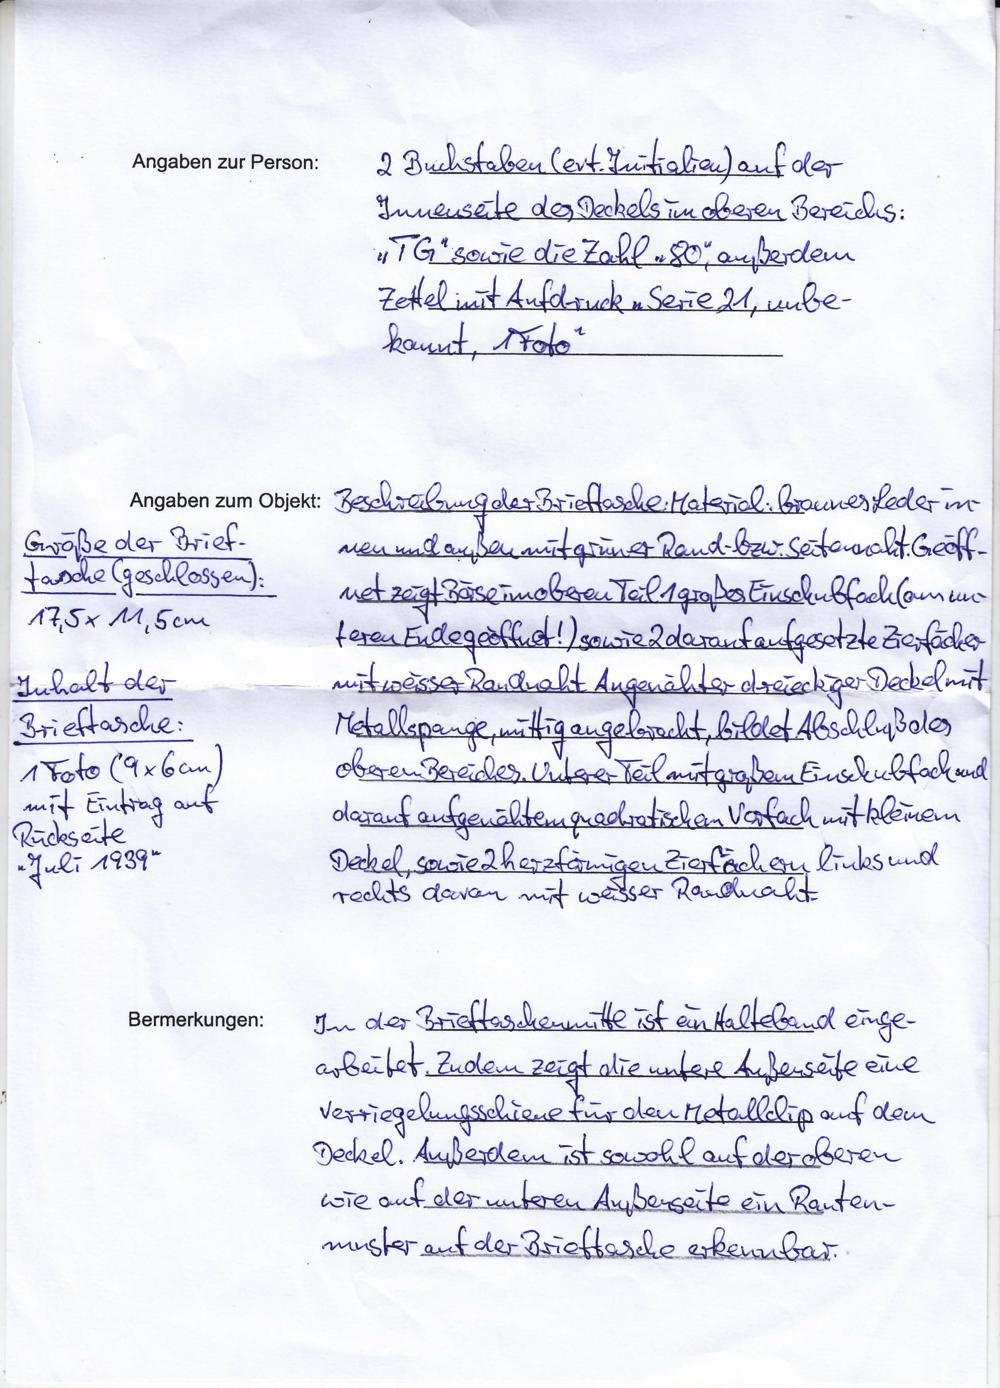 Angaben zur Person:
2 Buchstaben (evt. Initialien) auf der
Innenseite des Deckels im oberen Bereichs:
„TG“ sowie die Zahl „80“, außerdem
Zettel mit Aufdruck „Serie 21, unbe-
kannt, 1 Foto“
Angaben zum Objekt:
Beschreibung der Brieftasche: Material: braunes Leder in-
nen und außen mit grüner Rand- bzw. Seitennaht. Geöff-
net zeigt Börse im oberen Teil 1 großes Einschubfach (am un-
teren Ende geöffnet!) sowie 2 darauf aufgesetzte Zierfächer
mit weisser Randnaht. Angenähter dreieckiger Deckel mit
Metallspange, mittig angebracht, bildet Abschluß des
oberen Bereiches. Unterer Teil mit großem Einschubfach und
darauf aufgenähtem quadratischen Vorfach mit kleinem
Deckel, sowie 2 herzförmigen Zierfächern links und
rechts davon mit weisser Randnaht.
Größe der Brief-
tasche (geschlossen):
17,5 x 11,5 cm
Inhalt der
Brieftasche:
1 Foto (9 x 6 cm)
mit Eintrag auf
Rückseite
„Juli 1939“
Bermerkungen:
In der Brieftaschenmitte ist ein Halteband einge-
arbeitet. Zudem zeigt die untere Außenseite eine
Verriegelungsschiene für den Metallclip auf dem
Deckel. Außerdem ist sowohl auf der oberen
wie auf der unteren Außenseite ein Rauten-
muster auf der Brieftasche erkennbar.